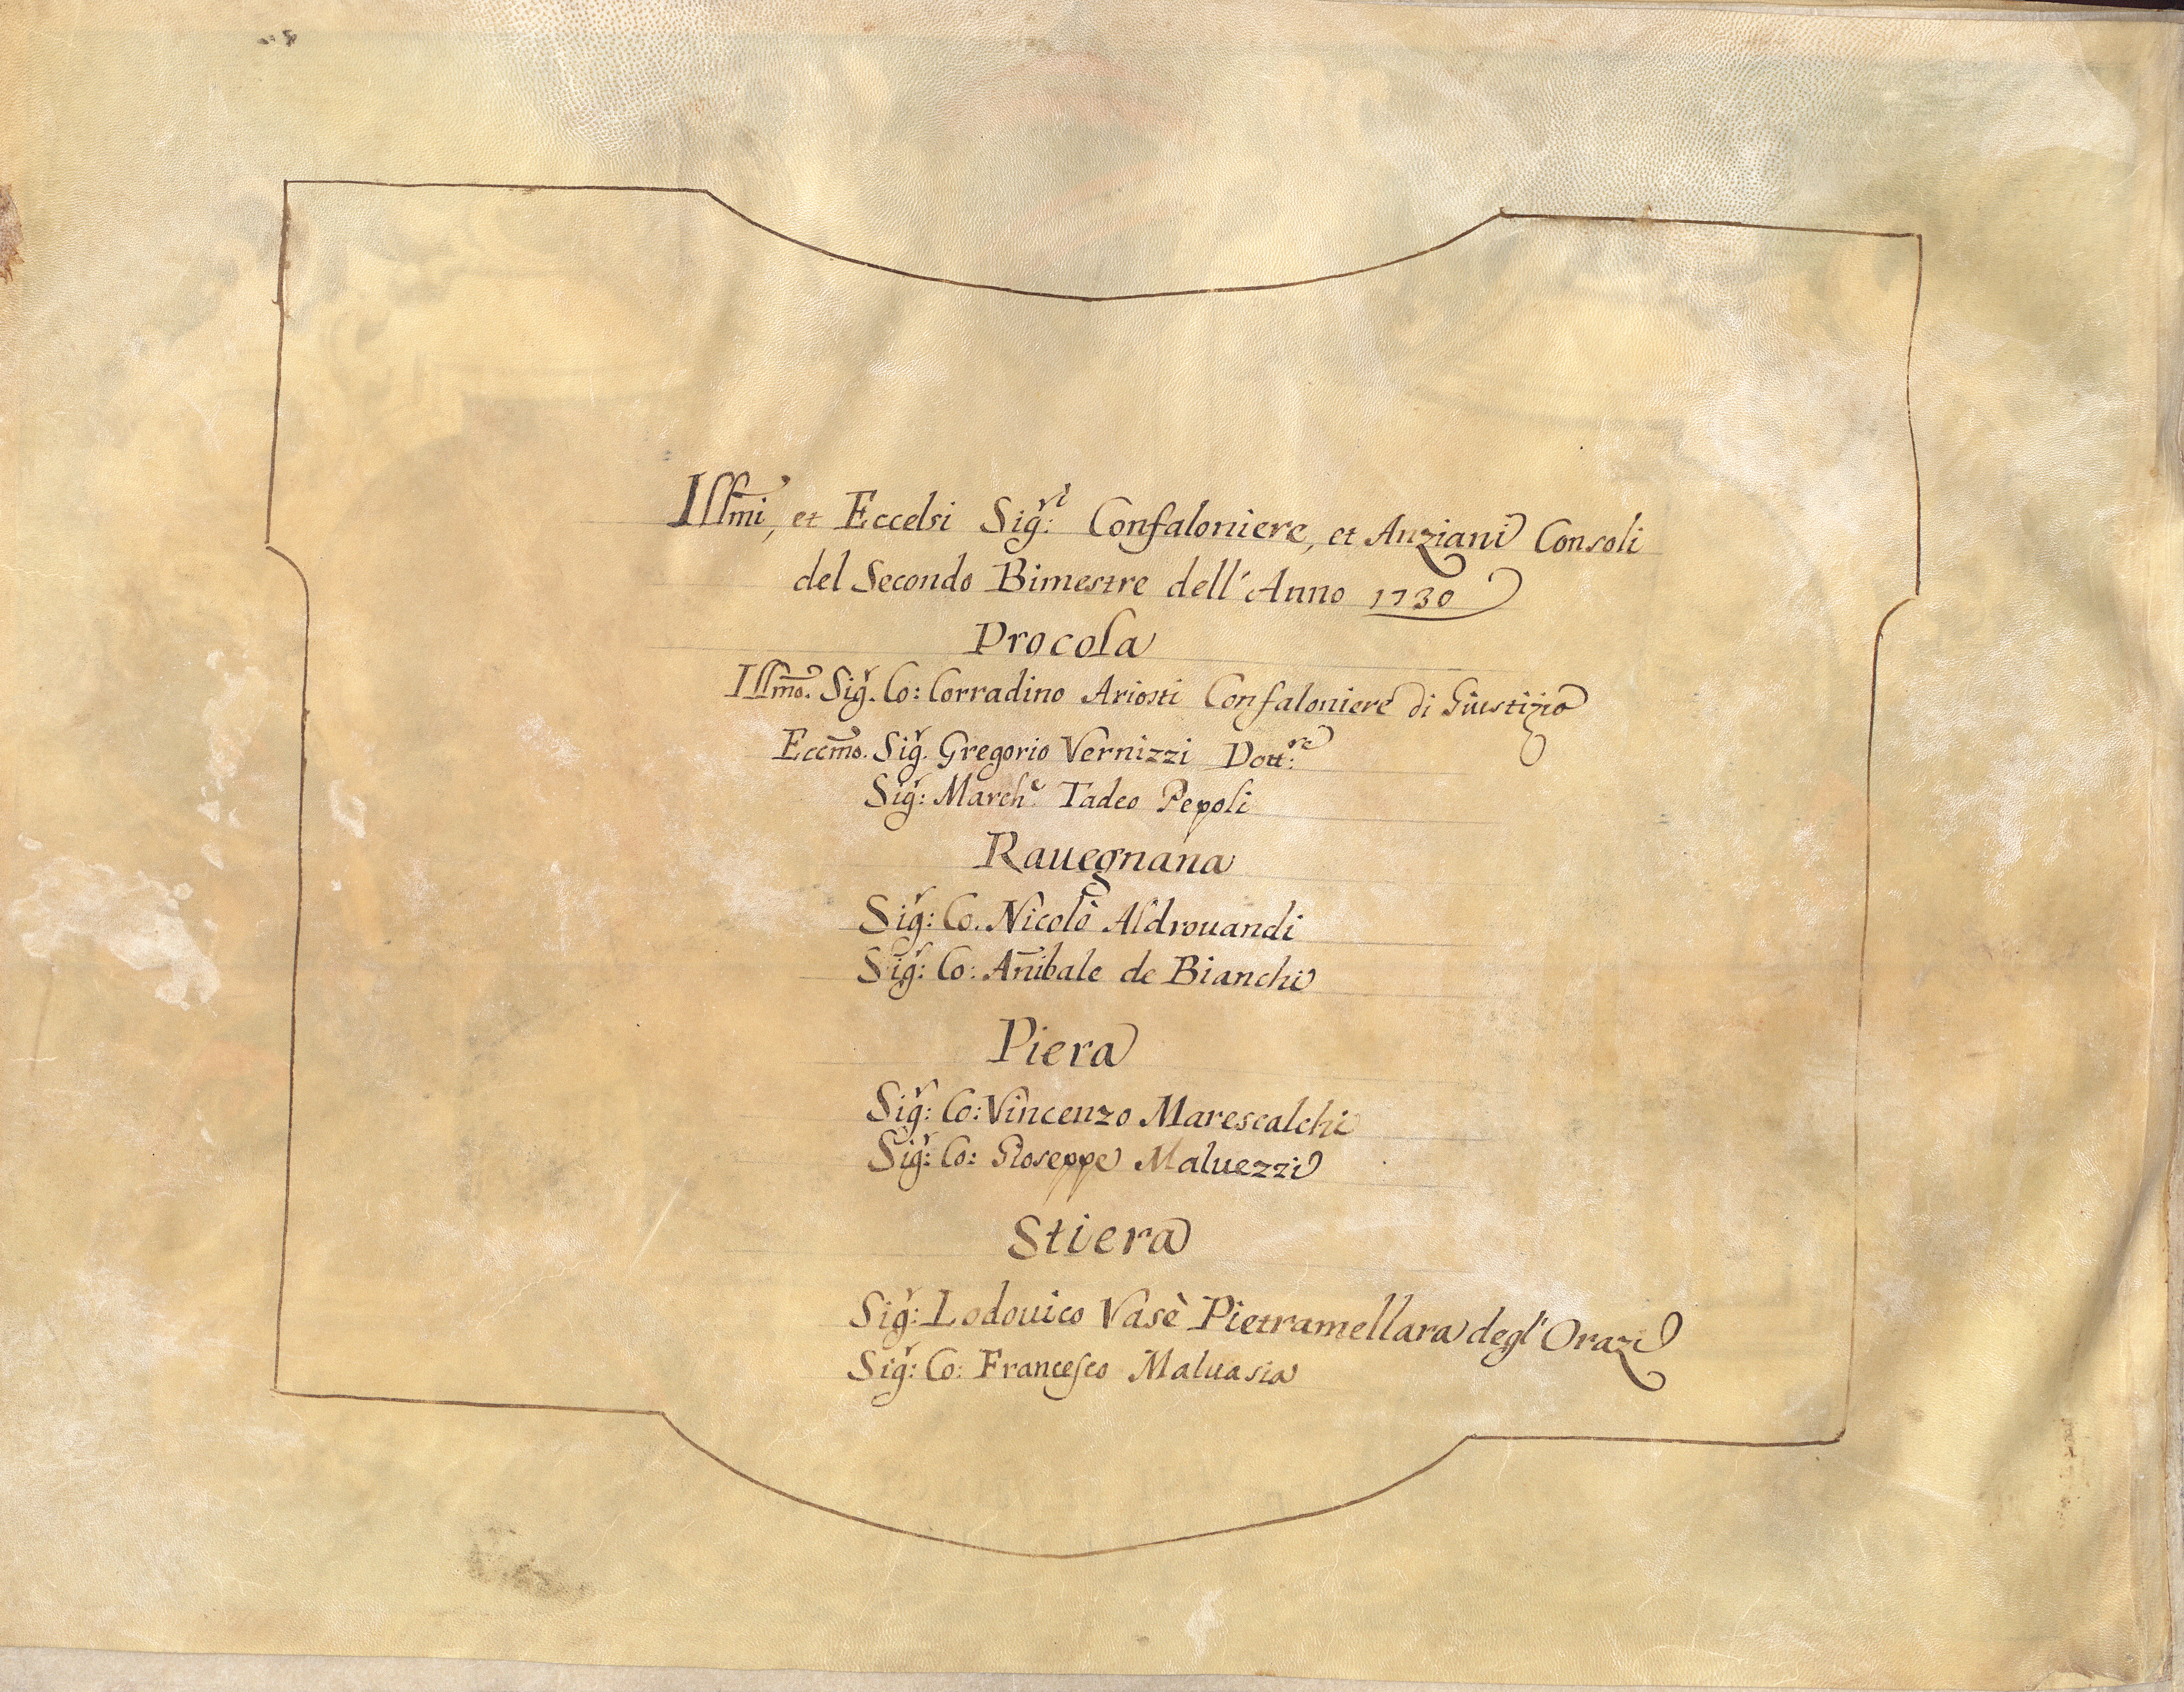 Illmi, et Eccelsi Sig:ri Confaloniere, et Anziani Consoli
del Secondo Bimestre dell'Anno 1730
Procola
Illmo. Sigr. Co: Corradino Ariosti Confaloniere di Giustizia
Eccmo. Sigr. Gregorio Vernizzi Dott:re
Sigr: March:e Tadeo Pepoli
Rauegnana
Sigr: Co. Nicolò Aldrouandi
Sigr: Co: Añibale de Bianchi
Piera
Sigr: Co: Vincenzo Marescalchi
Sigr: Co: Gioseppe Maluezzi
Stiera
Sigr: Lodouico Vasè Pietramellara degl'Orazi
Sigr: Co: Francesco Maluasia